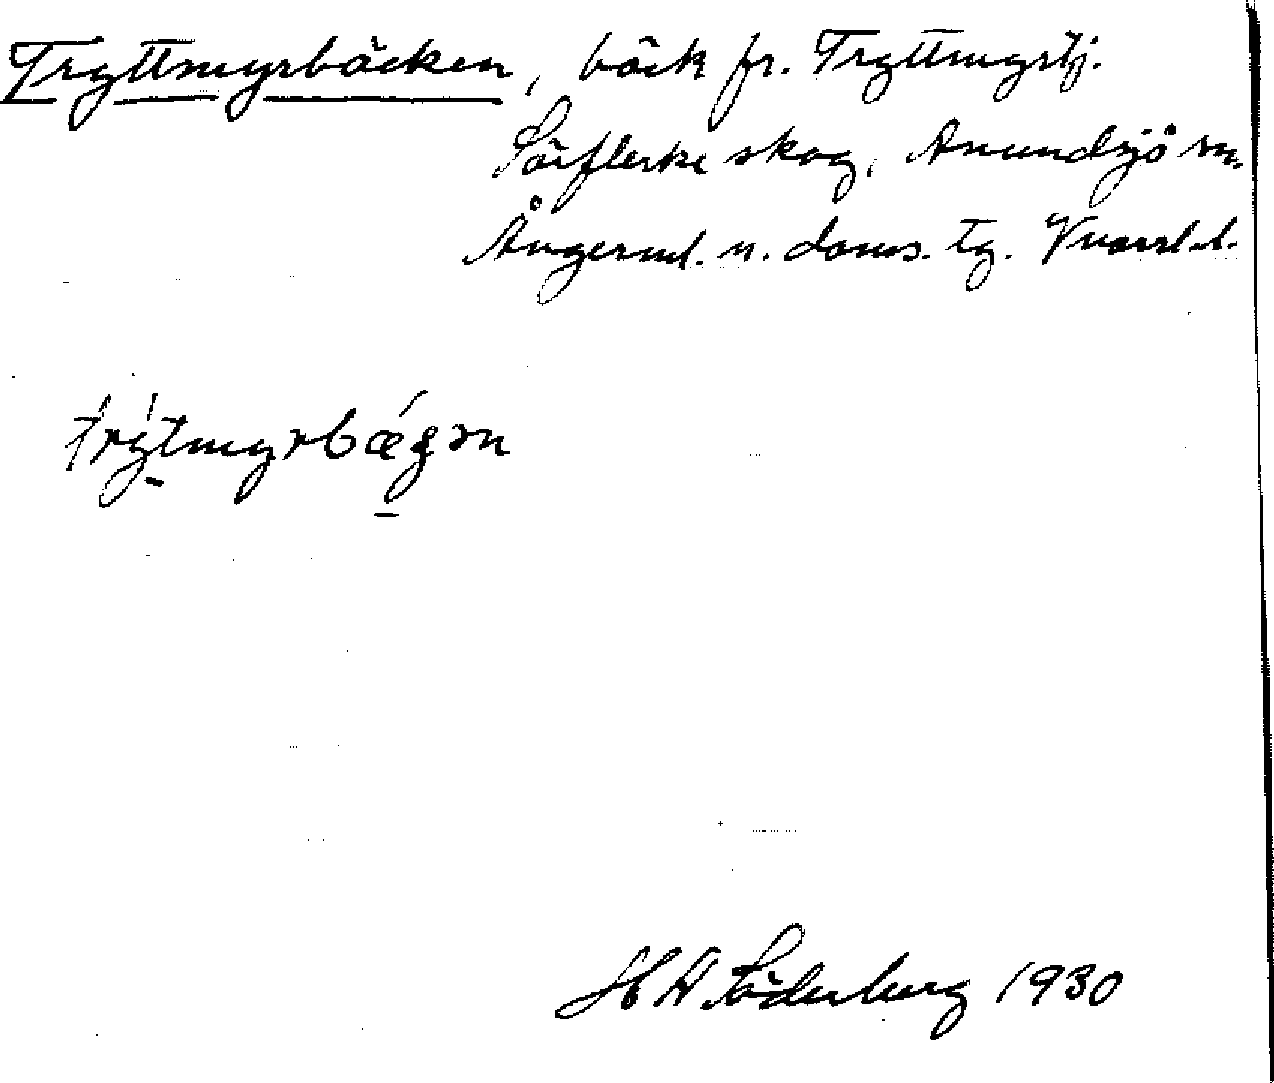 Tryttmyrbäcken, bäck fr. Tryttmyrtj.
Sörflärke skog, Anundsjö sn.
Ångerml. n. doms. tg. Vnorrl. l.
trýtmyrbǽgən
H W Söderberg 1930